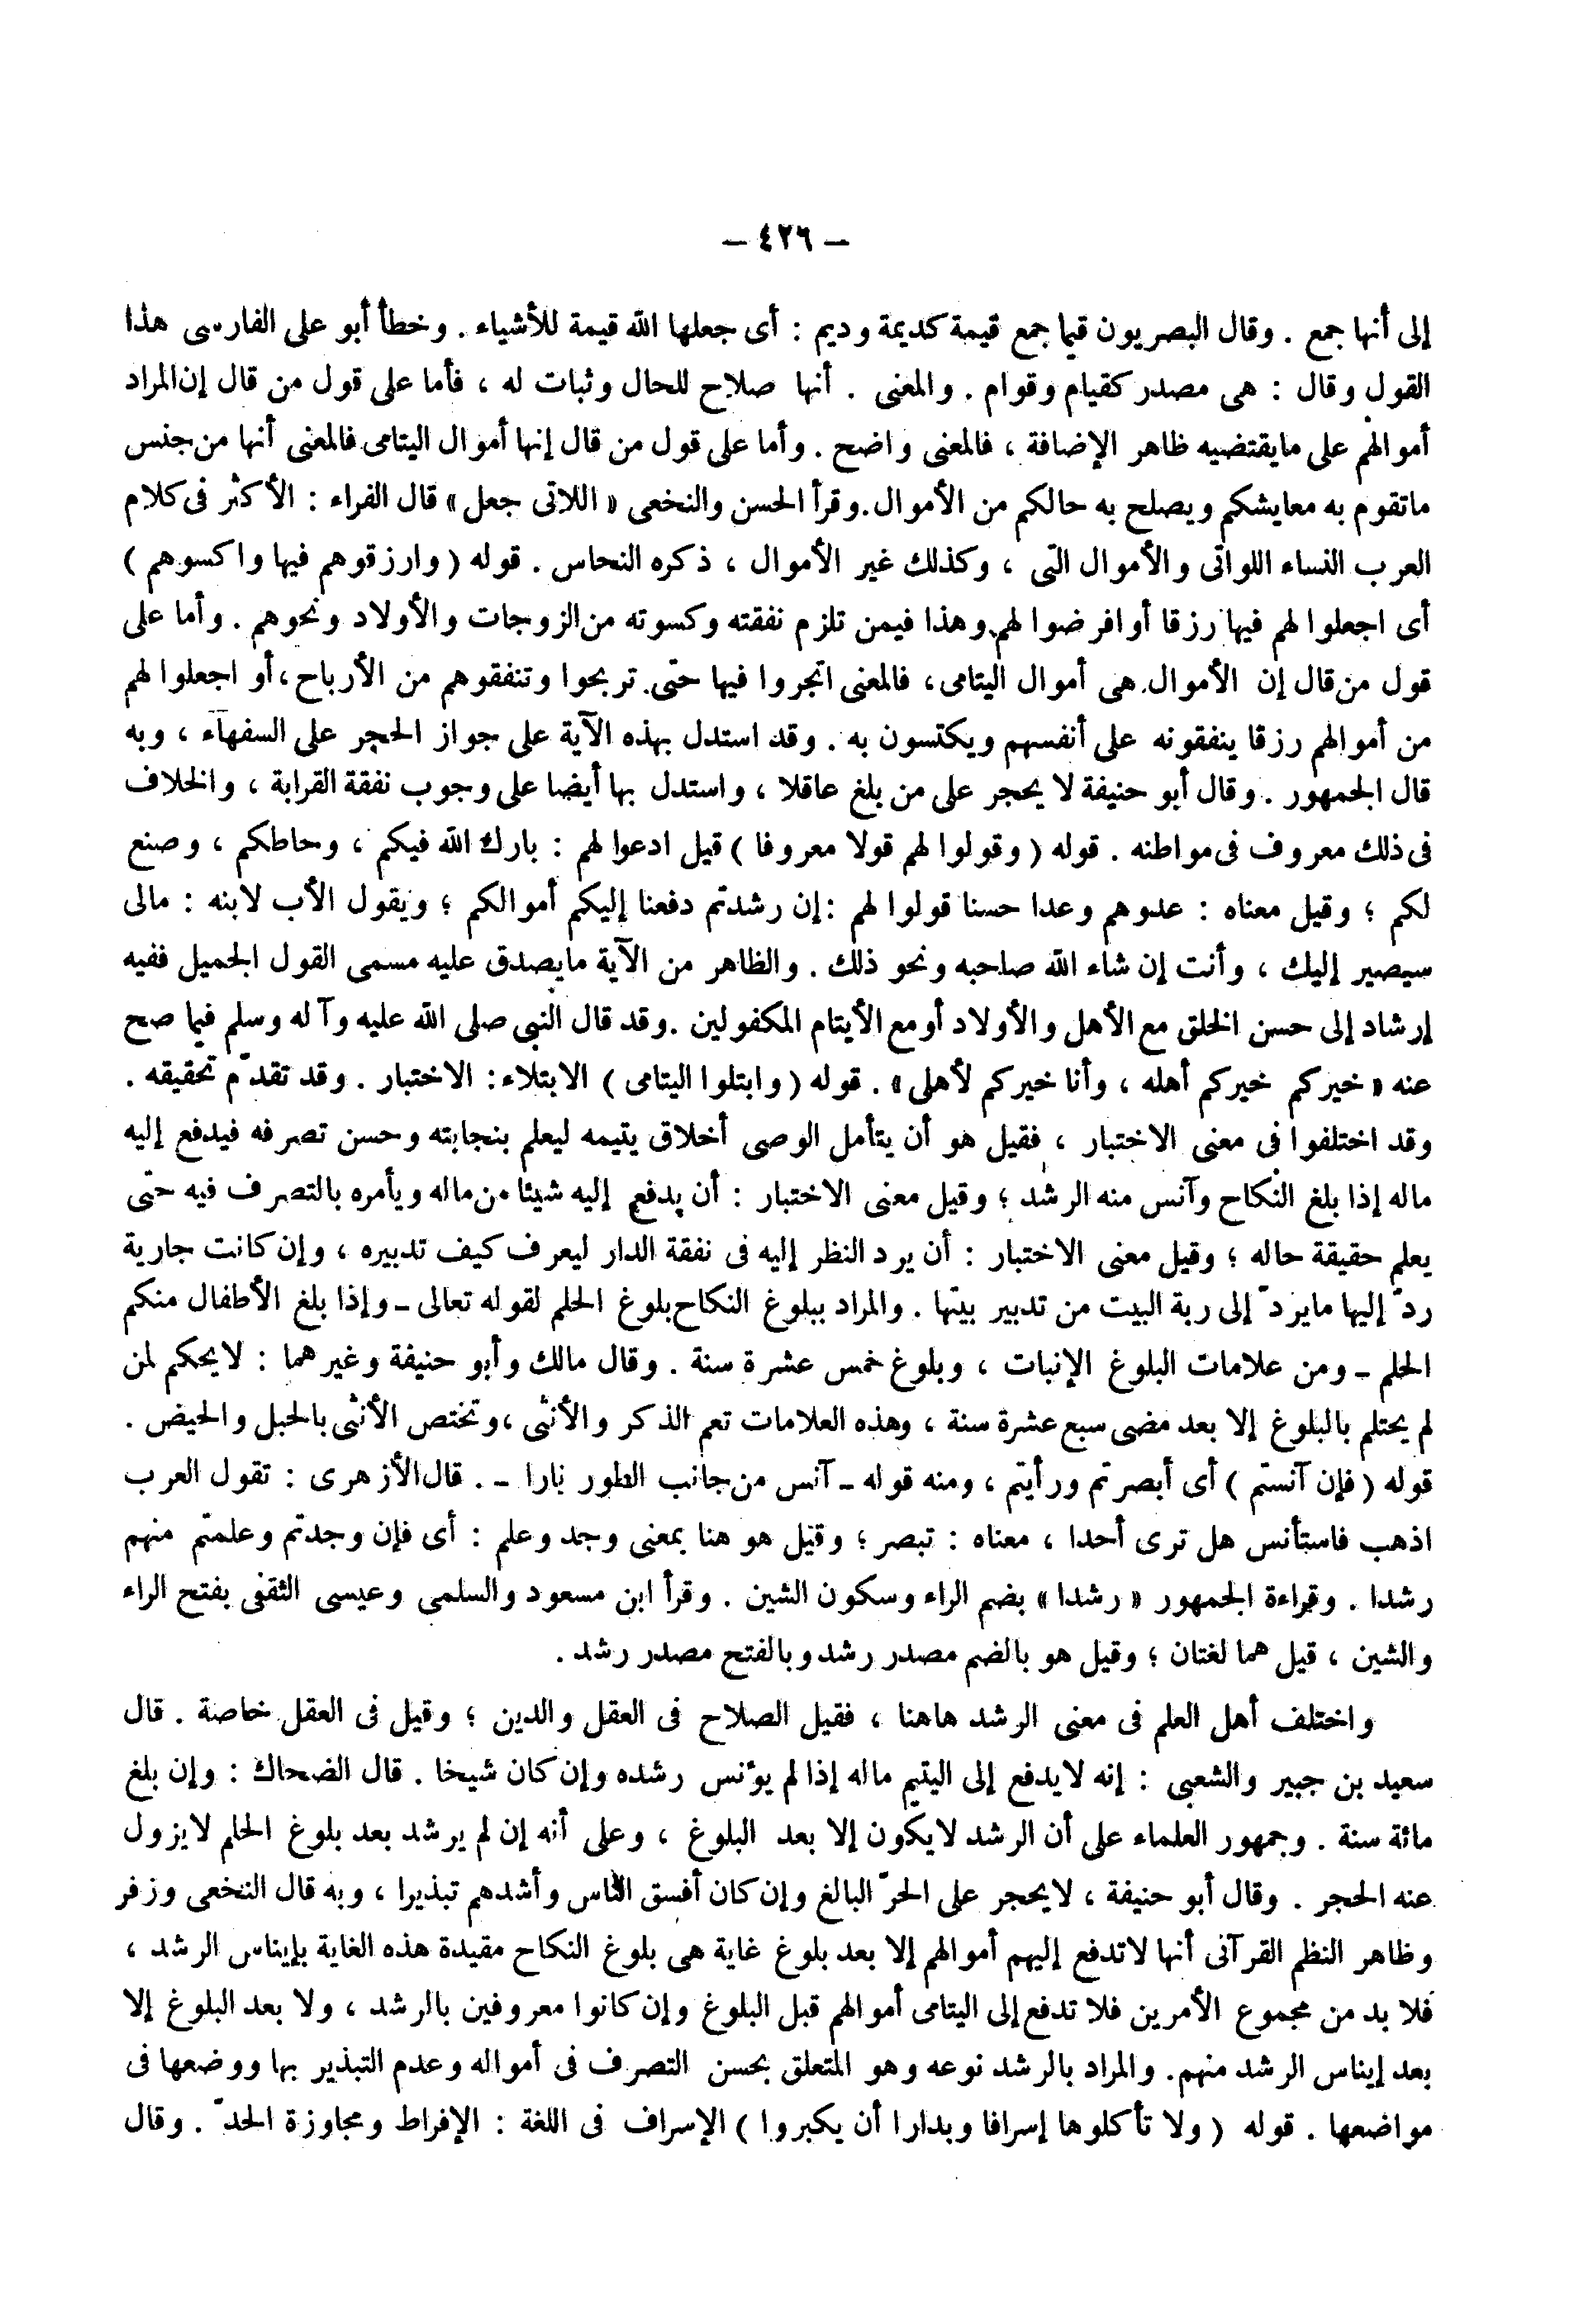 — ٤٢٦ —
إلى أنها جمع . وقال البصريون قيما جمع قيمة كديمة وديم : أى جعلها الله قيمة للأشياء . وخطأ أبو على الفارسى هذا
القول وقال : هى مصدر كقيام وقوام . والمعنى . أنها صلاح للحال وثبات له ، فأما على قول من قال إن المراد
أموالهم على مايقتضيه ظاهر الإضافة ، فالمعنى واضح . وأما على قول من قال إنها أموال اليتامى فالمعنى أنها من جنس
ماتقوم به معايشكم ويصلح به حالكم من الأموال . وقرأ الحسن والنخعى « اللاتى جعل » قال الفراء : الأكثر فى كلام
العرب النساء اللواتى والأموال التى ، وكذلك غير الأموال ، ذكره النحاس . قوله ( وارزقوهم فيها واكسوهم )
أى اجعلوا لهم فيها رزقا أو افرضوا لهم وهذا فيمن تلزم نفقته وكسوته من الزوجات والأولاد ونحوهم . وأما على
قول من قال إن الأموال هى أموال اليتامى ، فالمعنى اتجروا فيها حتى تربحوا وتنفقوهم من الأرباح ، أو اجعلوا لهم
من أموالهم رزقا ينفقونه على أنفسهم ويكتسون به . وقد استدل بهذه الآية على جواز الحجر على السفهاء ، وبه
قال الجمهور . وقال أبو حنيفة لا يحجر على من بلغ عاقلا ، واستدل بها أيضا على وجوب نفقة القرابة ، والخلاف
فى ذلك معروف فى مواطنه . قوله ( وقولوا لهم قولا معروفا ) قيل ادعوا لهم : بارك الله فيكم ، وحاطكم ، وصنع
لكم ؛ وقيل معناه : عدوهم وعدا حسنا قولوا لهم : إن رشدتم دفعنا إليكم أموالكم ؛ ويقول الأب لابنه : مالى
سيصير إليك ، وأنت إن شاء الله صاحبه ونحو ذلك . والظاهر من الآية مايصدق عليه مسمى القول الجميل ففيه
إرشاد إلى حسن الخلق مع الأهل والأولاد أو مع الأيتام المكفولين . وقد قال النبى صلى الله عليه وآله وسلم فيما صح
عنه « خيركم خيركم أهله ، وأنا خيركم لأهلى » . قوله ( وابتلوا اليتامى ) الابتلاء : الاختبار . وقد تقدّم تحقيقه .
وقد اختلفوا فى معنى الاختبار ، فقيل هو أن يتأمل الوصى أخلاق يتيمه ليعلم بنجابته وحسن تصرفه فيدفع إليه
ماله إذا بلغ النكاح وآنس منه الرشد ؛ وقيل معنى الاختبار : أن يدفع إليه شيئا من ماله ويأمره بالتصرف فيه حتى
يعلم حقيقة حاله ؛ وقيل معنى الاختبار : أن يرد النظر إليه فى نفقة الدار ليعرف كيف تدبيره ، وإن كانت جارية
ردّ إليها مايردّ إلى ربة البيت من تدبير بيتها . والمراد ببلوغ النكاح بلوغ الحلم لقوله تعالى ـ وإذا بلغ الأطفال منكم
الحلم ـ ومن علامات البلوغ الإنبات ، وبلوغ خمس عشرة سنة . وقال مالك وأبو حنيفة وغيرهما : لا يحكم لمن
لم يحتلم بالبلوغ إلا بعد مضى سبع عشرة سنة ، وهذه العلامات تعم الذكر والأنثى ، وتختص الأنثى بالحبل والحيض .
قوله ( فإن آنستم ) أى أبصرتم ورأيتم ، ومنه قوله ـ آنس من جانب الطور نارا ـ . قال الأزهرى : تقول العرب
اذهب فاستأنس هل ترى أحدا ، معناه : تبصر ؛ وقيل هو هنا بمعنى وجد وعلم : أى فإن وجدتم وعلمتم منهم
رشدا . وقراءة الجمهور « رشدا » بضم الراء وسكون الشين . وقرأ ابن مسعود والسلمى وعيسى الثقفى بفتح الراء
والشين ، قيل هما لغتان ؛ وقيل هو بالضم مصدر رشد وبالفتح مصدر رشد .
واختلف أهل العلم فى معنى الرشد هاهنا ، فقيل الصلاح فى العقل والدين ؛ وقيل فى العقل خاصة . قال
سعيد بن جبير والشعبى : إنه لايدفع إلى اليتيم ماله إذا لم يؤنس رشده وإن كان شيخا . قال الضحاك : وإن بلغ
مائة سنة . وجمهور العلماء على أن الرشد لايكون إلا بعد البلوغ ، وعلى أنه إن لم يرشد بعد بلوغ الحلم لايزول
عنه الحجر . وقال أبو حنيفة ، لايحجر على الحرّ البالغ وإن كان أفسق الناس وأشدهم تبذيرا ، وبه قال النخعى وزفر
وظاهر النظم القرآنى أنها لاتدفع إليهم أموالهم إلا بعد بلوغ غاية هى بلوغ النكاح مقيدة هذه الغاية بإيناس الرشد ،
فلا بد من مجموع الأمرين فلا تدفع إلى اليتامى أموالهم قبل البلوغ وإن كانوا معروفين بالرشد ، ولا بعد البلوغ إلا
بعد إيناس الرشد منهم . والمراد بالرشد نوعه وهو المتعلق بحسن التصرف فى أمواله وعدم التبذير بها ووضعها فى
مواضعها . قوله ( ولا تأكلوها إسرافا وبدارا أن يكبروا ) الإسراف فى اللغة : الإفراط ومجاوزة الحدّ . وقال